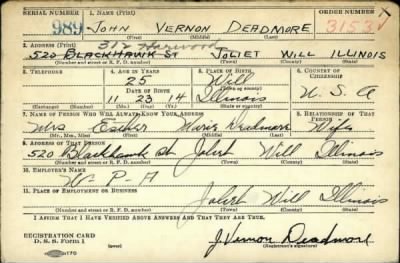 SERIAL NUMBER 1. NAME (Print) ORDER NUMBER
989 JOHN VERNON DEADMORE 3153
(First) (Middle) (Last)
2. ADDRESS (Print) 312 Harwood
520 BLACKHAWK ST JOLIET WILL ILLINOIS
(Number and street or R. F. D. number) (Town) (County) (State)
3. TELEPHONE 4. AGE IN YEARS 5. PLACE OF BIRTH 6. COUNTRY OF CITIZENSHIP
25 Will
(Town or county)
DATE OF BIRTH
11 23 14 Illinois U. S. A
(Exchange) (Number) (Mo.) (Day) (Yr.) (State or country)
7. NAME OF PERSON WHO WILL ALWAYS KNOW YOUR ADDRESS 8. RELATIONSHIP OF THAT PERSON
Mrs Esther Marie Deadmore Wife
(Mr., Mrs., Miss) (First) (Middle) (Last)
9. ADDRESS OF THAT PERSON
520 Blackhawk St Joliet Will Illinois
(Number and street or R. F. D. number) (Town) (County) (State)
10. EMPLOYER'S NAME
W-P-A
11. PLACE OF EMPLOYMENT OR BUSINESS
Joliet Will Illinois
(Number and street or R. F. D. number) (Town) (County) (State)
I AFFIRM THAT I HAVE VERIFIED ABOVE ANSWERS AND THAT THEY ARE TRUE.
REGISTRATION CARD
D. S. S. Form 1
J. Vernon Deadmore
(Registrant's signature)